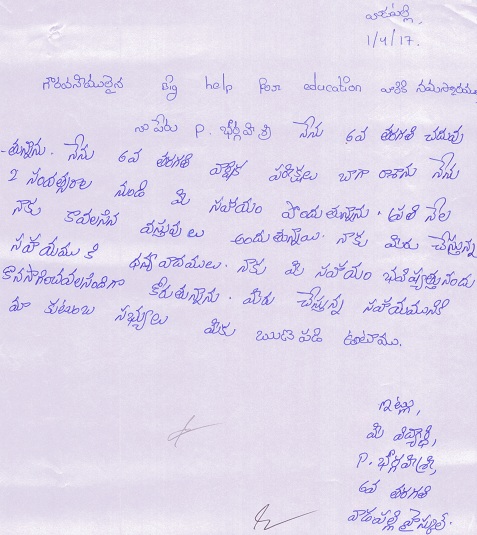 వాడపల్లి,
1/4/17.
గౌరవనీయులైన Big help For education వారికి నమస్కారములు
నా పేరు P. భార్గవి శ్రీ నేను 6వ తరగతి చదువు
-తున్నాను. నేను 6వ తరగతి వార్షిక పరీక్షలు బాగా రాశాను నేను
2 సంవత్సరాల నుండి మీ సహాయం పొందుతున్నాను. ప్రతి నెల
నాకు కావలసిన వస్తువులు అందుతున్నాయి. నాకు మీరు చేస్తున్న
సహాయము కి ధన్యవాదములు. నాకు మీ సహాయం భవిష్యత్తునందు
కొనసాగించవలసిందిగా కోరుతున్నాను. మీరు చేస్తున్న సహాయమునకి
మా కుటుంబ సభ్యులు మీకు ఋణపడి ఉంటాము.
ఇట్లు,
మీ విద్యార్థి,
P. భార్గవి శ్రీ,
6వ తరగతి
వాడపల్లి హైస్కూల్.